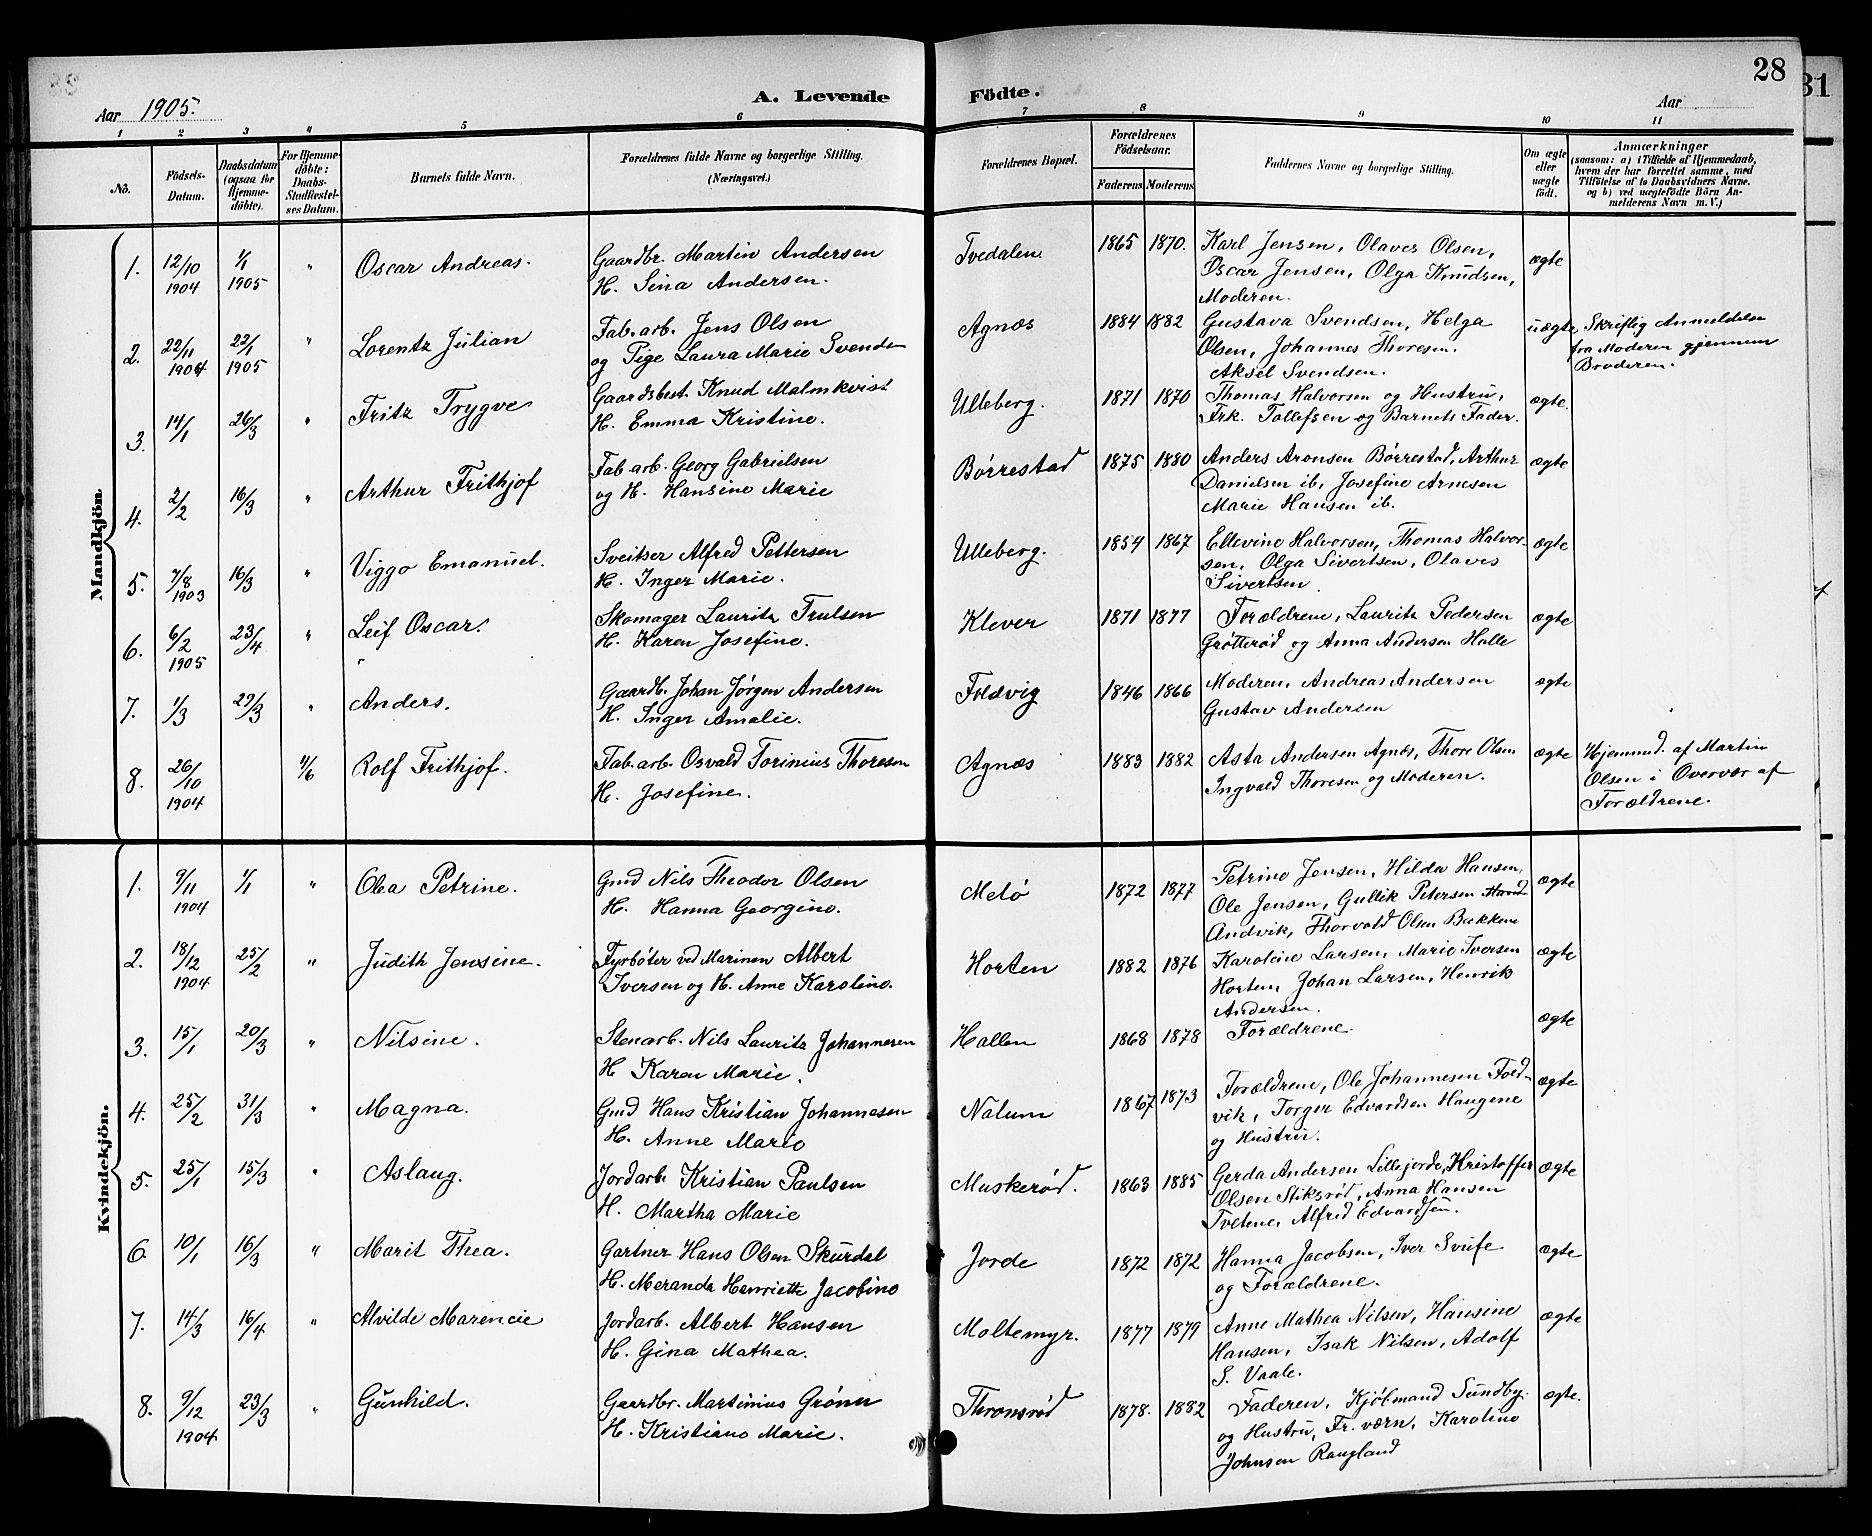 28
31
Aar 1905.
A. Levende Födte.
Aar
1 2 3 4 5 6 7 8 9 10 11
No.
Födsels-Datum.
Daabsdatum (ogsaa for Hjemme-döbte).
For Hjemme-döbte: Daabs-Stadfæstel-ses Datum.
Barnets fulde Navn.
Forældrenes fulde Navne og borgerlige Stilling. (Næringsvei.)
Forældrenes Bopæl.
Forældrenes Födselsaar.
Faderens Moderens
Faddernes Navne og borgerlige Stilling.
Om ægte eller uægte födt.
Anmærkninger
(saasom: a) i Tilfælde af Hjemmedaab, hvem der har forrettet samme, med Tilföielse af to Daabsvidners Navne. og b) ved uægtefödte Börn An-melderens Navn m. V.)
Mandkjön.
1. 12/10 1904 1/1 1905 " Oscar Andreas. Gaardbr. Martin Andersen Tvedalen. 1865 1870. Karl Jensen, Olaves Olsen, ægte
H. Sina Andersen. Oscar Jensen, Olga Knudsen,
Moderen.
2. 22/11 1904 22/1 1905 " Lorentz Julian Fab. arb. Jens Olsen Agnæs 1884 1882 Gustava Svendsen, Helga uægte Skriftlig Anmeldelse
og Pige Laura Marie Svends Olsen, Johannes Thoresen. fra Moderen gjennem
Aksel Svendsen. Broderen.
3. 14/1 26/3 " Fritz Trygve Gaardsbest. Knud Malmkvist Ulleberg. 1871 1870 Thomas Halvorsen og Hustru, ægte.
H. Emma Kristine. Frk. Tollefsen og Barnets Fader.
4. 2/2 16/3 " Arthur Frithjof Fab. arb. Georg Gabrielsen Børrestad 1875 1880 Anders Aronsen Børrestad, Arthur ægte
og H. Hansine Marie Danielsen ib, Josefine Arnesen
Marie Hansen ib.
5. 7/8 1903 16/3 " Viggo Emanuel. Sveitser Alfred Pettersen Ulleberg. 1854 1867 Ellevine Halvorsen, Thomas Halvor- ægte
H. Inger Marie. sen, Olga Sivertsen, Olaves
Sivertsen
6. 6/2 1905 23/4 " Leif Oscar. Skomager Lauritz Trulsen Klever 1871 1877 Forældrene, Lauritz Pedersen ægte
H. Karen Josefine. Grøtterød og Anna Andersen Halle
7. 1/3 29/3 " Anders. Gaardb. Johan Jørgen Andersen Foldvig 1846 1866 Moderen, Andreas Andersen ægte
H. Inger Amalie. Gustav Andersen
8. 26/10 1904 11/6 Rolf Frithjof. Fab. arb. Osvald Torinius Thoresen Agnæs 1883 1882 Asta Andersen Agnæs, Thore Olsen ægte Hjemmed. af Martin
H. Josefine. Ingvald Thoresen og Moderen. Olsen i Overvær af
Forældrene.
Kvindekjön.
1. 9/11 1904 1/1 " Olea Petrine. Gmd Nils Theodor Olsen Melø 1872 1877 Petrine Jensen, Hilda Hansen, ægte
H. Hanna Georgine. Ole Jensen, Gullik Petersen Hand
Andvik, Thorvald Olsen Bækkene
2. 18/12 1904 25/2 " Judith Jensine. Fyrbøter ved Marinen Albert Horten 1882 1876 Karoline Larsen, Marie Iversen ægte
Iversen og H. Anne Karoline. Horten, Johan Larsen, Henrik
Andersen.
3. 15/1 20/3 " Nilsine. Stenarb. Nils Lauritz Johannesen Hallen 1868 1878 Forældrene. ægte
H Karen Marie.
4. 25/2 31/3 " Magna. Gmd Hans Kristian Johannesen Nalum 1867 1873 Forældrene, Ole Johannesen Fold- ægte
H. Anne Marie vik, Torger Edvardsen Haugene
og Hustru.
5. 25/1 15/3 " Aslaug. Jordarb. Kristian Paulsen Muskerød. 1863 1885 Gerda Andersen Lillejorde, Kristoffer ægte
H. Martha Marie Olsen Stiksrød, Anna Hansen
Tvetene, Alfred Edvardsen.
6. 10/1 16/3 " Marit Thea. Gartner Hans Olsen Skurdal Jorde 1872 1872 Hanna Jacobsen, Iver ægte
H. Meranda Henriette Jacobine og Forældrene.
7. 14/3 16/4 " Alvilde Marencie Jordarb. Albert Hansen Moltemyr. 1877 1879 Anne Mathea Nilsen, Hansine ægte
H. Gina Mathea. Hansen, Isak Nilsen, Adolf
S. Vaale.
8. 9/12 1904 23/3 " Gunhild. Gaardbr. Martinius Grønn Thronsrød 1878. 1882 Faderen, Kjøbmand Sundby. ægte.
H. Kristiane Marie. og Hustru, Fr. værn, Karoline
Johnsen Raugland